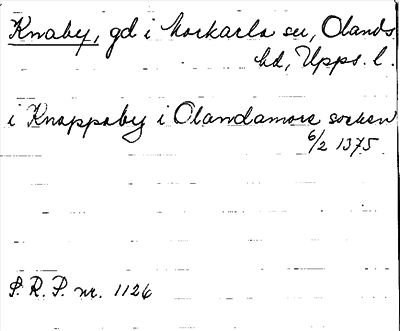 Knaby, gd i Morkarla sn, Olands
hd, Upps. l.
i Knappaby i Olandamora socken
6/2 1375
S. R. P. nr. 1126